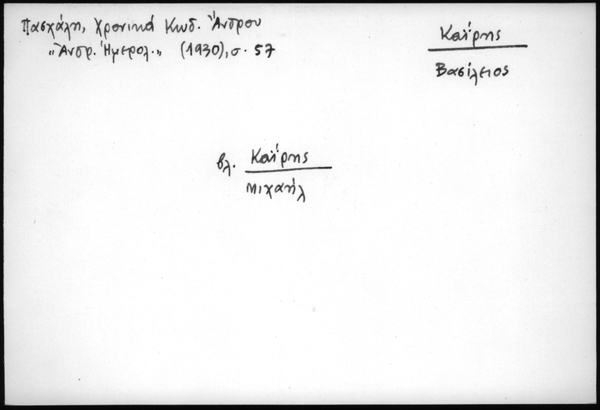 Πασχάλη, Χρονικά Κωδ. Ἄνδρου
„Ἀνδρ. Ἡμερολ.„ (1930), σ. 57
Καΐρης
Βασίλειος
βλ. Καΐρης
Μιχαήλ